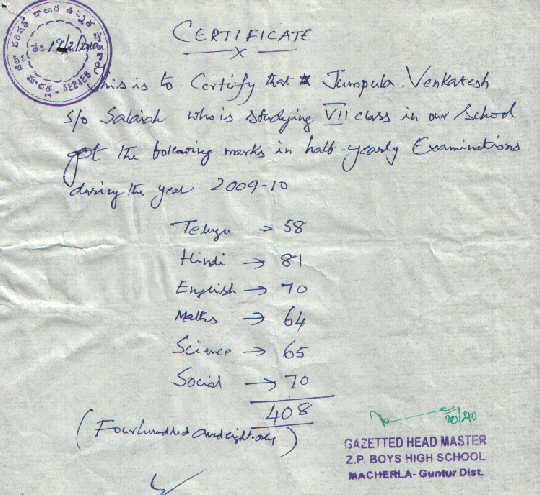 CERTIFICATE
This is to Certify that Jampula Venkatesh
S/o Salaiah who is studying VII class in our School
got the following marks in half-yearly Examinations
during the year 2009-10
Telugu → 58
Hindi → 81
English → 70
Maths → 64
Science → 65
Social → 70
408
(Four hundred and eight only)
GAZETTED HEAD MASTER
Z.P. BOYS HIGH SCHOOL
MACHERLA - Guntur Dist.